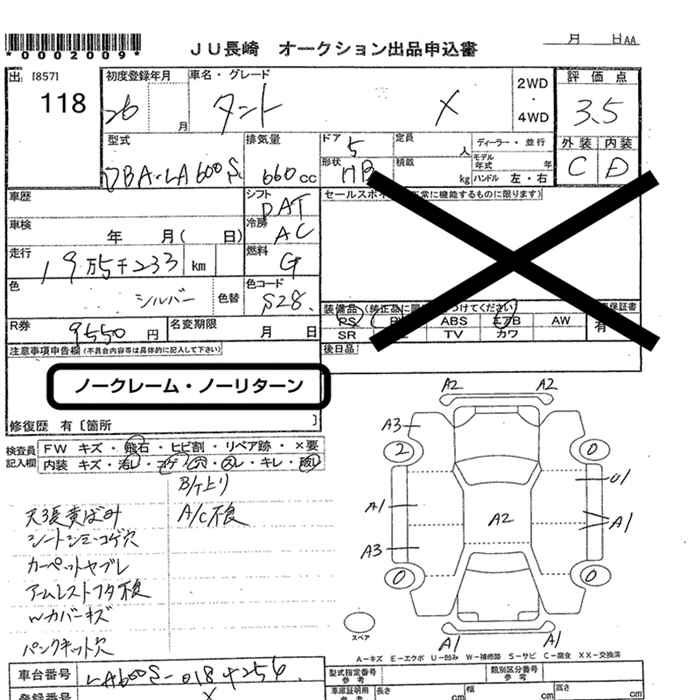 *0002009*
JU長崎 オークション出品申込書
月 日AA
出 [857] 118
初度登録年月 26 月
車名・グレード タント X
2WD・4WD
評価点 3.5
型式 DBA-LA600S
排気量 660cc
ドア 5
定員 人
ディーラー・並行
形状 HB
積載 kg
モデル年式 年
ハンドル 左・右
外装 内装
C D
車歴
シフト DAT
車検 年 月( 日)
冷房 AC
走行 19万5千233 km
燃料 G
色 シルバー 色替
色コード S28
R券 9550 円
名変期限 月 日
装備品
PS ABS エアB AW
SR TV カワ
有
後日品
注意事項申告欄(不具合内容等は具体的に記入して下さい)
ノークレーム・ノーリターン
修復歴 有〔箇所 〕
検査員記入欄
FW キズ・飛石・ヒビ割・リペア跡・×要
内装 キズ・汚レ・コゲ・穴・スレ・キレ・破レ
B/T上り
天張黄ばみ A/C不良
シートシミ・コゲ穴
カーペットヤブレ
アームレストフタ不良
Wカバーキズ
パンクキット欠
A2 A2
A3
2 0
U1
A1
A2
A1
A3
0 0
スペア
A1 A1
A-キズ E-エクボ U-凹み W-補修跡 S-サビ C-腐食 XX-交換済
車台番号 LA600S-
型式指定番号 参考
類別区分番号 参考
登録番号
車庫証明用 参考
長さ cm
幅 cm
高さ cm